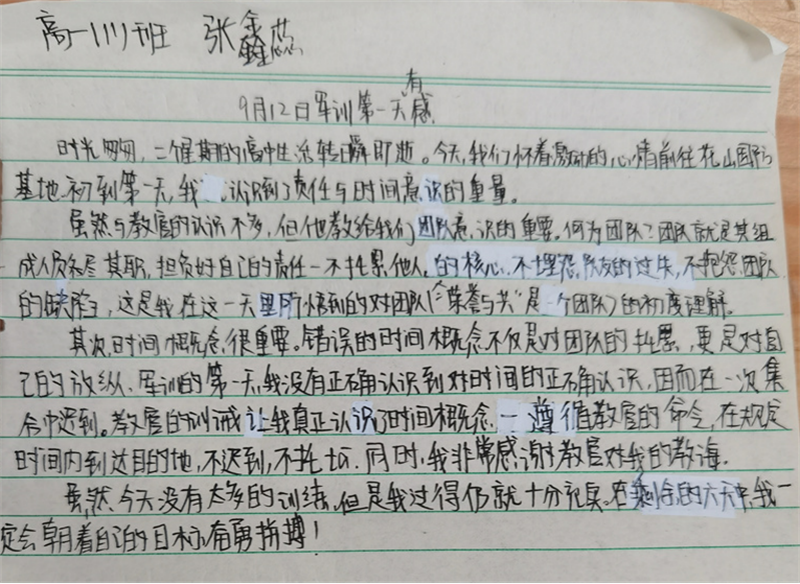 高一(11)班 张鑫蕊
9月12日军训第一天有感
时光匆匆,二个星期的高中生活转瞬即逝。今天,我们怀着激动的心情前往花山国防
基地.初到第一天,我认识到了责任与时间意识的重量。
虽然与教官的认识不多,但他教给我们团队意识的重要.何为团队?团队就是其组
成人员各尽其职,担负好自己的责任一不托累他人,的核心.不埋怨队友的过失,不抱怨团队
的缺陷,这是我在这一天里所悟到的对团队("荣誉与共"是一个团队)的初度理解。
其次,时间概念很重要。错误的时间概念不仅是对团队的托累,更是对自
己的放纵.军训的第一天,我没有正确认识到对时间的正确认识,因而在一次集
合中迟到。教官的训诫让我真正认识了时间概念.一遵循教官的命令,在规定
时间内到达目的地,不迟到,不托拉.同时,我非常感谢教官对我的教诲.
虽然今天没有太多的训练,但是我过得仍就十分充实.在剩余的六天中,我一
定会朝着自己的目标奋勇拼搏!